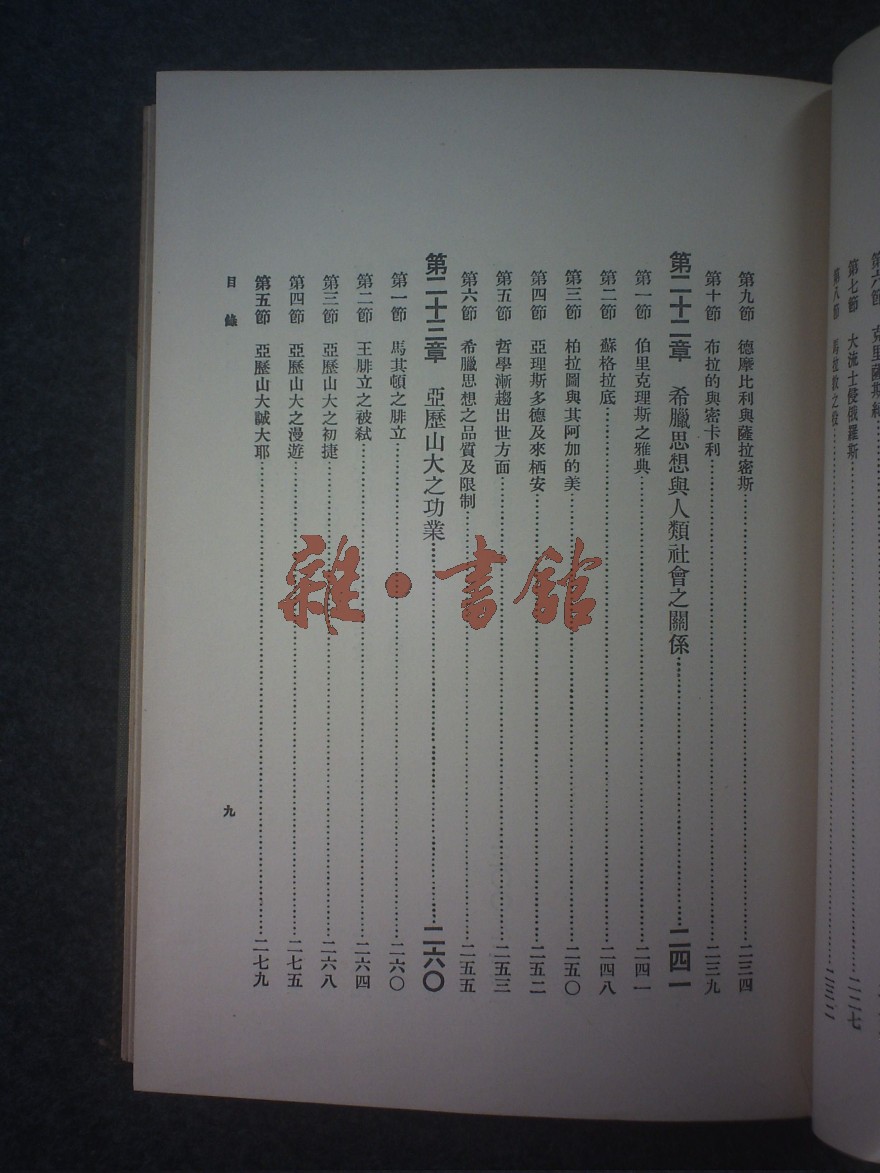 第七節 大流士侵俄羅斯……二二七
第八節 馬拉敦之役……二三二
第九節 德摩比利與薩拉密斯……二三四
第十節 布拉的與密卡利……二三九
第二十二章 希臘思想與人類社會之關係……二四一
第一節 伯里克理斯之雅典……二四一
第二節 蘇格拉底……二四八
第三節 柏拉圖與其阿加的美……二五〇
第四節 亞理斯多德及來栖安……二五二
第五節 哲學漸趨出世方面……二五三
第六節 希臘思想之品質及限制……二五五
第二十三章 亞歷山大之功業……二六〇
第一節 馬其頓之腓立……二六〇
第二節 王腓立之被弒……二六四
第三節 亞歷山大之初捷……二六八
第四節 亞歷山大之漫遊……二七五
第五節 亞歷山大誠大耶……二七九
目錄
九
雜·書館